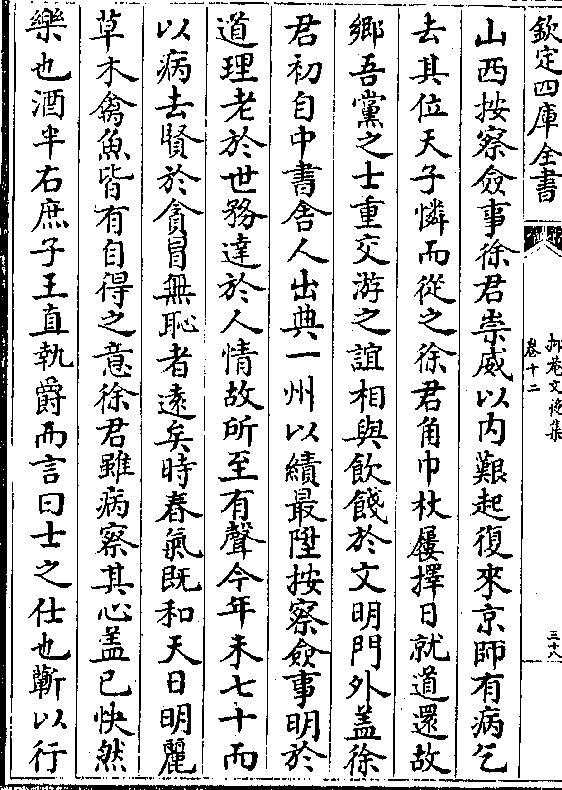 欽定四庫全書
抑菴文後集
卷十二
三十八
山西按察僉事徐君崇威以内艱起復來京師有病乞
去其位天子憐而從之徐君角巾杖屨擇日就道還故
鄉吾黨之士重交游之誼相與飲餞於文明門外盖徐
君初自中書舎人出典一州以績最陞按察僉事明於
道理老於世務達於人情故所至有聲今年未七十而
以病去賢於貪冒無恥者遠矣時春氣既和天日明麗
草木禽魚皆有自得之意徐君雖病察其心盖已快然
樂也酒半右庶子王直執爵而言曰士之仕也蘄以行